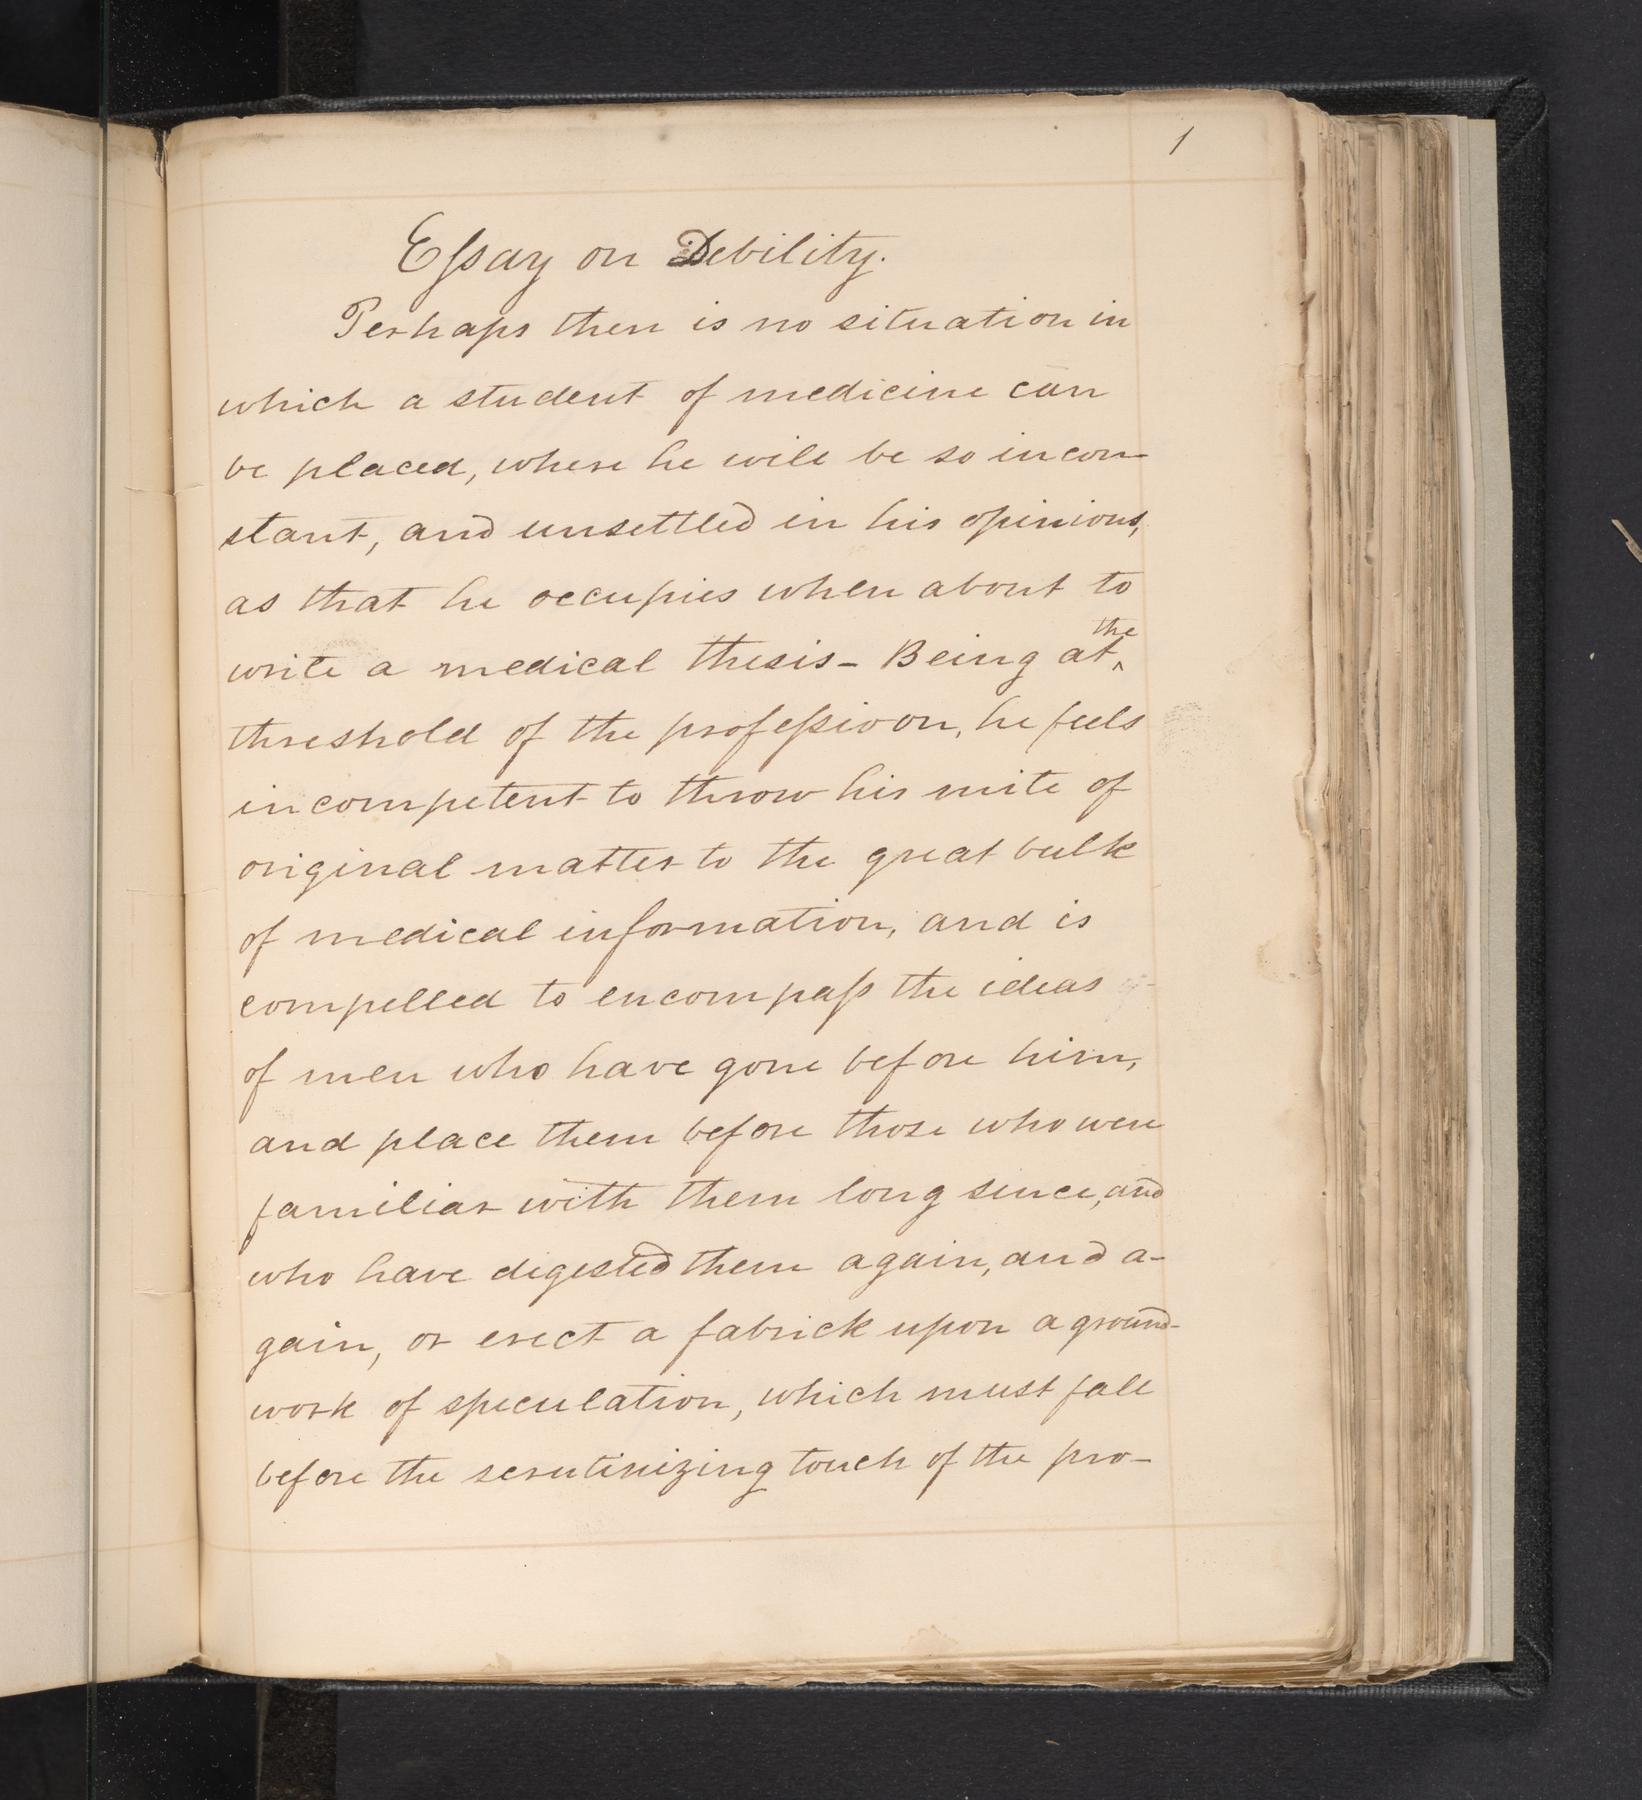 1
Essay on Debility.
Perhaps there is no situation in
which a student of medicine can
be placed, where he will be so incon-
stant, and unsettled in his opinions,
as that he occupies when about to
write a medical thesis - Being at the
threshold of the professioon, he feels
incompetent to throw his mite of
original matter to the great bulk
of medical information, and is
compelled to encompass the ideas
of men who have gone before him,
and place them before those who were
familiar with them long since, and
who have digested them again, and a-
gain, or erect a fabrick upon a ground-
work of speculation, which must fall
before the scrutinizing touch of the pro-